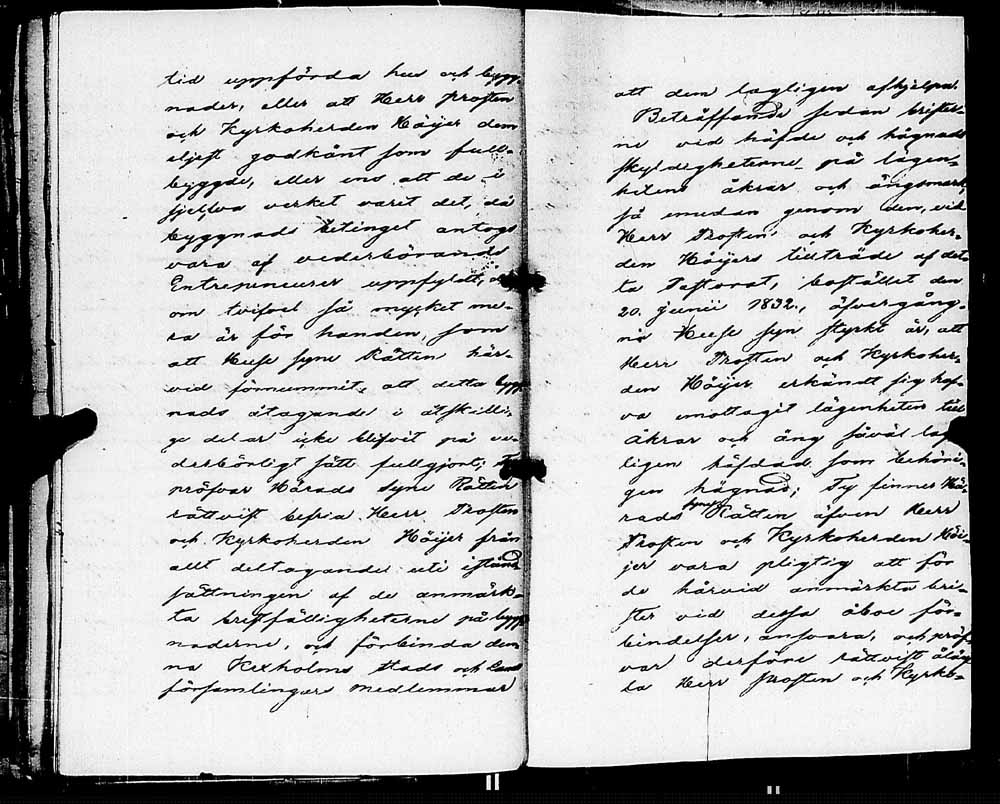 tid uppförda hus och bygg-
nader, eller att Herr Prosten
och Kyrkoherden Höijer dem
eljest godkänt som full-
byggde, eller ens att de i
sjelfva verket varit det, då
byggnads betinget antogs
vara af vederbörande
Entrepreneurer uppfyldt,
om tvifvel så mycket me-
ra är för handen, som
att Heese syne Rätten här-
vid förnummit, att detta bygg
nads åtagande i åtskilli-
ge delar icke blifvit på ve-
derbörligt sätt fullgjort;
pröfvar Härads Syne Rätten
rättvist befria Herr Prosten
och Kyrkoherden Höijer från
allt deltagande uti istånd
sättningen af de anmärk-
ta bristfälligheterne på bygg
naderne, och förbinda den-
na Kexholms stads och Lands
församlingars medlemmar
att dem lagligen afhjelpa.
Beträffande sedan brister-
ne vid häfde och hägnads
skyldigheterne på lägen-
hetens åkrar och ängsmark,
så emedan genom den, vid
Herr Prosten och Kyrkoher-
den Höijers tillträde af det-
ta Pastorat, bestäldt den
20. junii 1832., öfvergång-
ne Heese syn styrkt är, att
Herr Prosten och Kyrkoher-
den Höijer erkändt sig haf-
va emottagit lägenhetens till
åkrar och äng såväl lag
ligen häfdad, som behöri-
gen hägnad; Ty finner Hä-
rads syne Rätten äfven Herr
Prosten och Kyrkoherden Höi-
jer vara pligtig att för
de härvid anmärkta bri-
ster vid dessa åboe för-
bindelser, ansvara, och pröf-
var derföre rättvist åläg-
ga Herr Prosten och Kyrko-